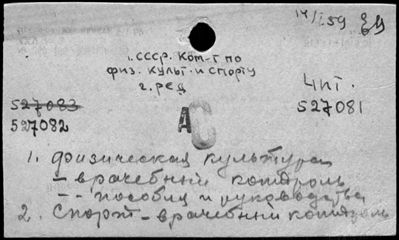 14/I 59
1. СССР. Ком-т по
физ. культ. и спорту
2. ред
Чит.
527083
527081
527082
АС
1. Физическая культура
– врачебный контроль
– – пособия и руководства
2. Спорт – врачебный контроль